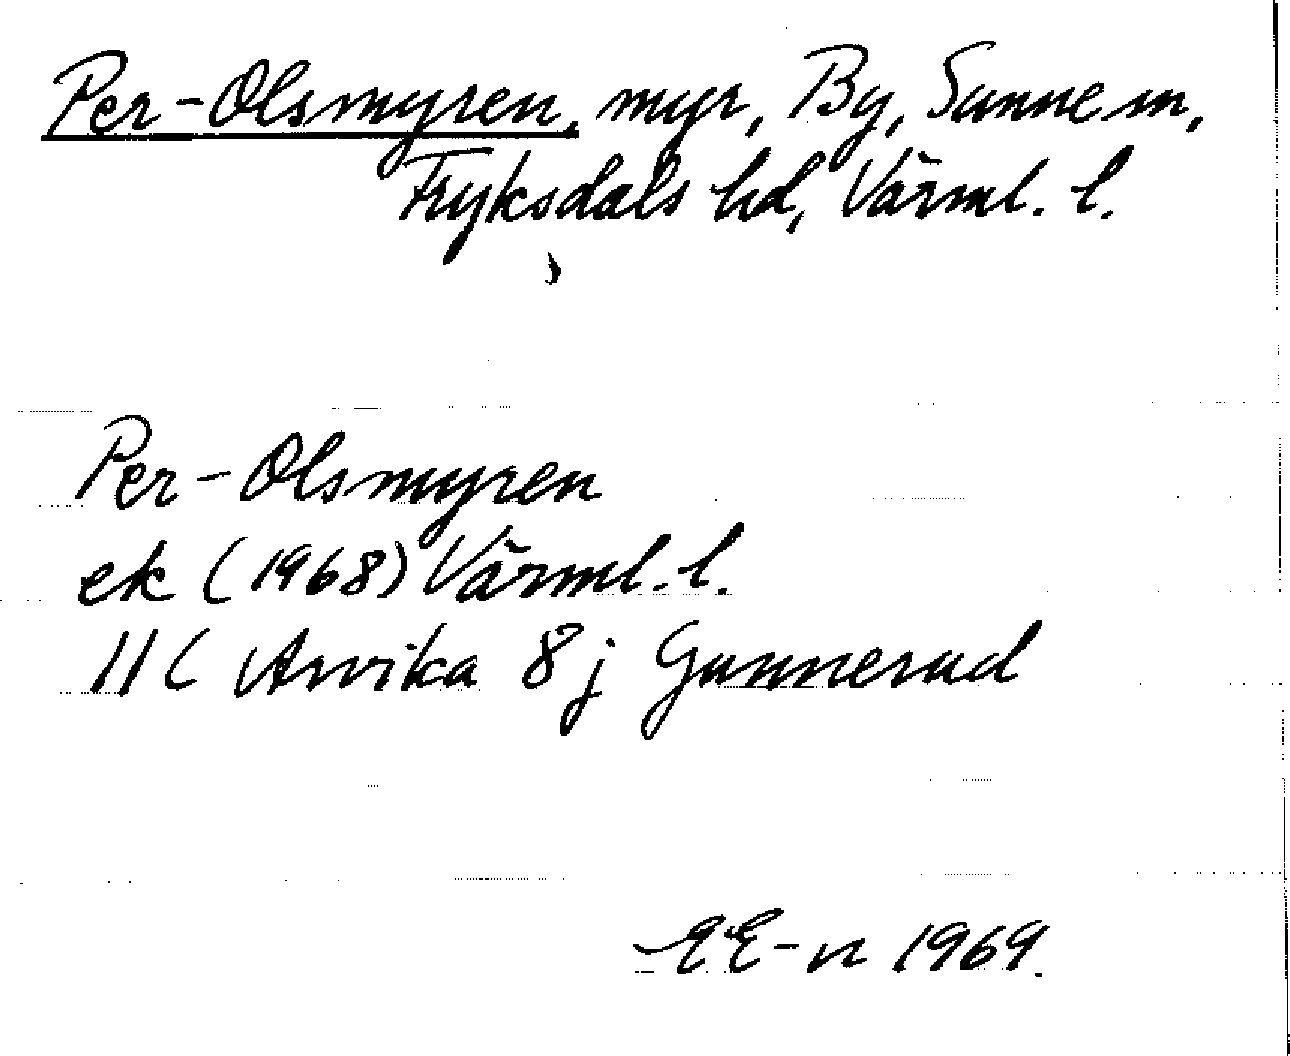 Per-Olsmyren, myr, By, Sunne sn,
Fryksdals hd, Värml. l.
Per-Olsmyren
ek (1968) Värml. l.
11C Arvika 8j Gunnerud
EE-n 1969.